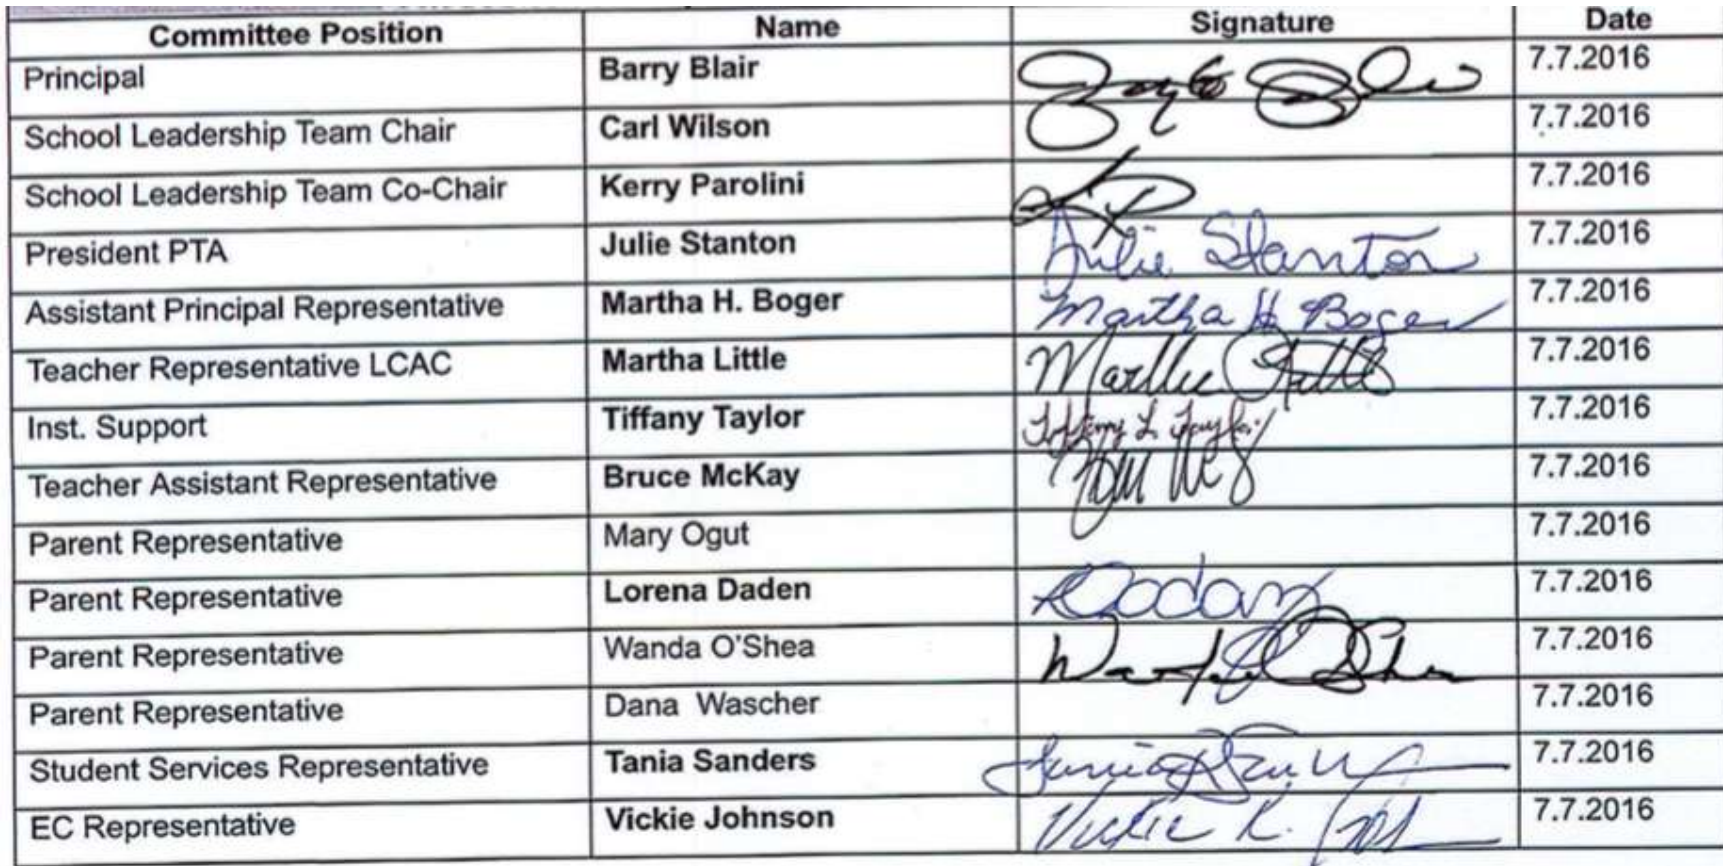 Committee Position Name Signature Date
Principal Barry Blair 7.7.2016
School Leadership Team Chair Carl Wilson 7.7.2016
School Leadership Team Co-Chair Kerry Parolini KP 7.7.2016
President PTA Julie Stanton Julie Stanton 7.7.2016
Assistant Principal Representative Martha H. Boger Martha H Boger 7.7.2016
Teacher Representative LCAC Martha Little Martha Little 7.7.2016
Inst. Support Tiffany Taylor Tiffany L. Taylor 7.7.2016
Teacher Assistant Representative Bruce McKay 7.7.2016
Parent Representative Mary Ogut 7.7.2016
Parent Representative Lorena Daden 7.7.2016
Parent Representative Wanda O'Shea 7.7.2016
Parent Representative Dana Wascher 7.7.2016
Student Services Representative Tania Sanders 7.7.2016
EC Representative Vickie Johnson Vickie K. 7.7.2016